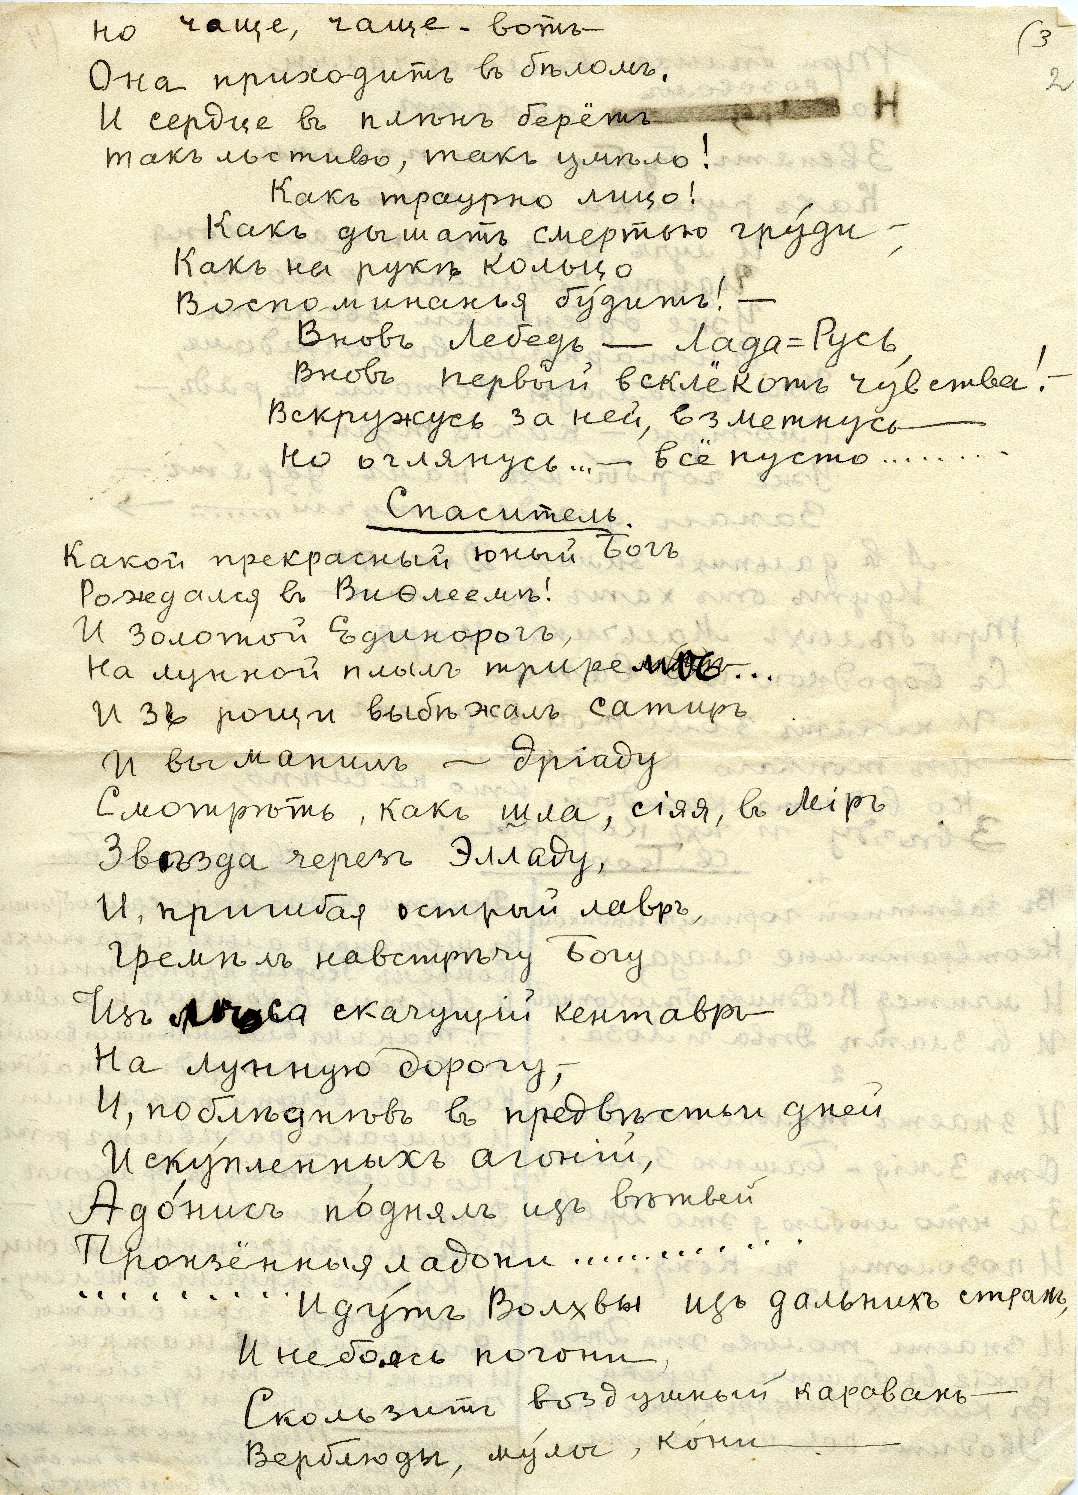 (3
2
но чаще, чаще - вотъ
Она приходитъ въ бѣломъ.
И сердце въ плѣнъ берётъ Н
такъ льстиво, такъ умѣло!
Какъ траурно лицо!
Какъ дышатъ смертью гру́ди —,
Какъ на рукѣ кольцо
Воспоминанья бу́дитъ! —
Вновь Лебедь — Лада=Русь,
Вновь первый всклёкотъ чу́вства! —
Вскружусь за ней, взметнусь —
Но оглянусь... — всё пусто ........
Спаситель.
Какой прекрасный юный Богъ
Рождался въ Виѳлеемѣ!
И золотой Единорогъ,
На лунной плылъ триреме...
Изъ рощи выбѣжалъ сатиръ
И выманилъ — дріаду
Смотрѣть, какъ шла, сіяя, въ Міръ
Звѣзда черезъ Элладу,
И, пригибая острый лавръ,
Гремѣлъ навстрѣчу Богу
Изъ лѣса скачущій кентавръ —
На лунную дорогу, —
И, поблѣднѣвъ въ предвѣстьи дней
Иску́пленныхъ агоній,
Адо́нисъ по́днялъ изъ вѣтвей
Пронзённыя ладони ............
.......... Иду́тъ Волхвы изъ дальнихъ странъ,
И не боясь погони,
Скользитъ воздушный караванъ —
Верблюды, му́лы, ко́ни —